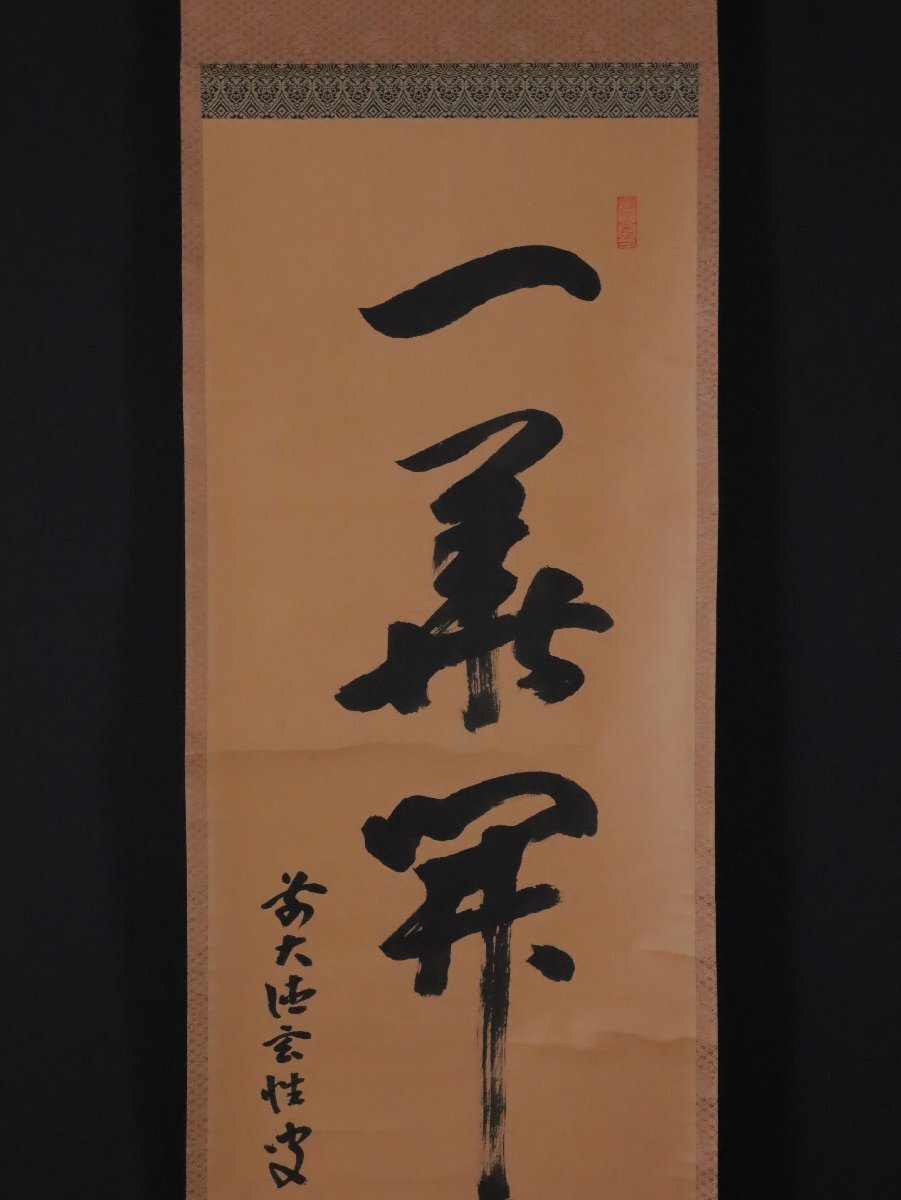 一華開
前大徳玄性叟